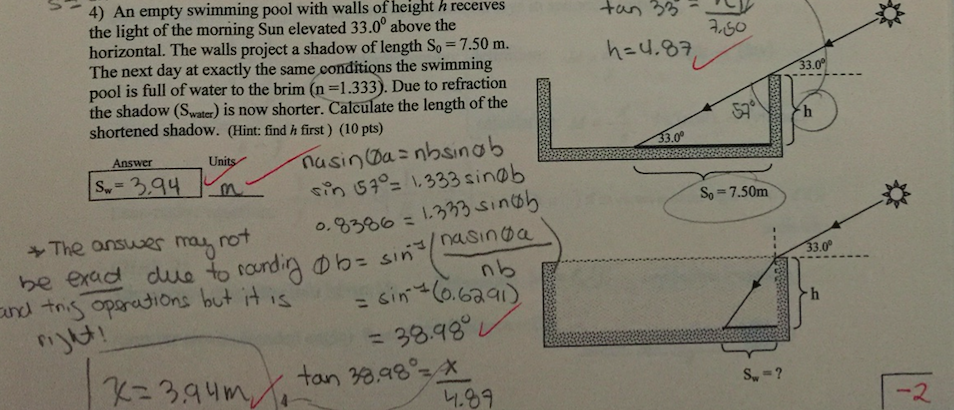 4) An empty swimming pool with walls of height h receives
the light of the morning Sun elevated 33.0⁰ above the
horizontal. The walls project a shadow of length S₀ = 7.50 m.
The next day at exactly the same conditions the swimming
pool is full of water to the brim (n =1.333). Due to refraction
the shadow (Swater) is now shorter. Calculate the length of the
shortened shadow. (Hint: find h first ) (10 pts)
Answer Units
Sw = 3.94 m
nasinØa = nbsinØb
sin 57° = 1.333 sinØb
0.8386 = 1.333 sinØb
Øb = sin⁻¹ (nasinØa / nb)
= sin⁻¹(0.6291)
= 38.98°
tan 38.98° = x / 4.87
x = 3.94m
* The answer may not
be exact due to rounding
and trig operations but it is
right!
tan 33° = / 7.50
h = 4.87
33.0⁰
57°
h
33.0⁰
S₀ = 7.50m
33.0⁰
h
Sw = ?
-2